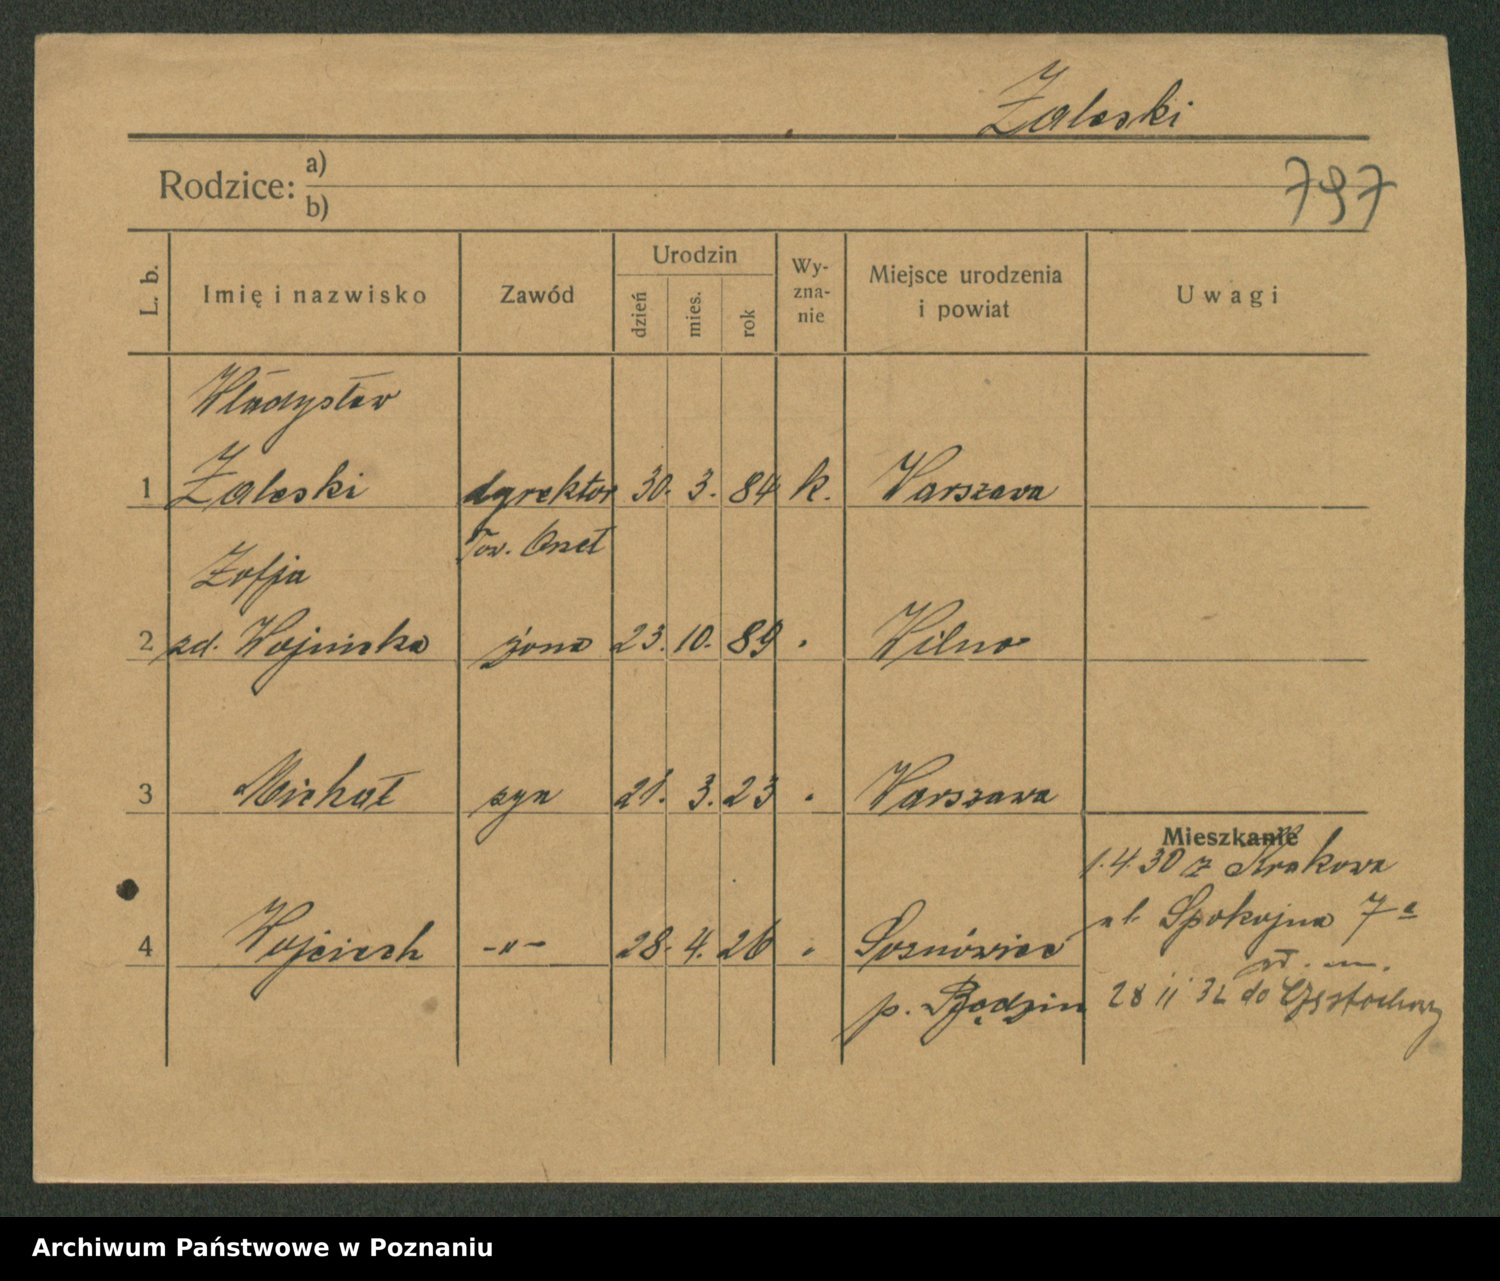 Zaleski
Rodzice: a)
b)
797
L. b.
Imię i nazwisko
Zawód
Urodzin
dzień
mies.
rok
Wy-
zna-
nie
Miejsce urodzenia
i powiat
Uwagi
Władysław
1 Zaleski dyrektor 30. 3. 84 k. Warszawa
Tow.
Zofja
2 zd. Wojnicka żona 23. 10. 89 " Wilno
3 Michał syn 21. 3. 23 " Warszawa
Mieszkanie
1.4.30 z Krakowa
ul. Spokojna 7a
4 Wojciech -"- 28. 4. 26 " Sosnówiec
p. Będzin
28 II 32 do Częstochowy
Archiwum Państwowe w Poznaniu